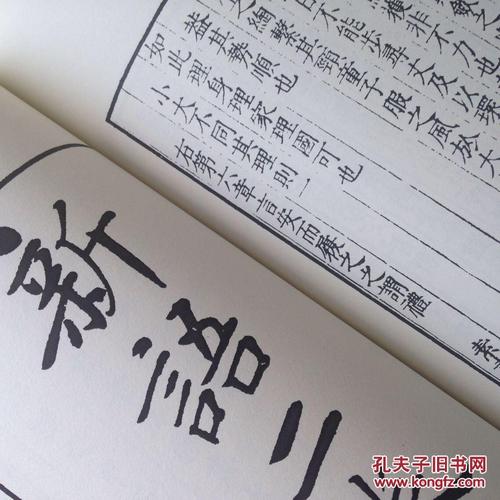 獲非不力也
日不能步尋丈及以環
之綯縻其頸童子服之風於大
蓋其勢順也
如此理身理家理國可也
小大不同其理則一
右第六章言安而履之之謂禮
素
新語二
孔夫子旧书网
www.kongfz.com